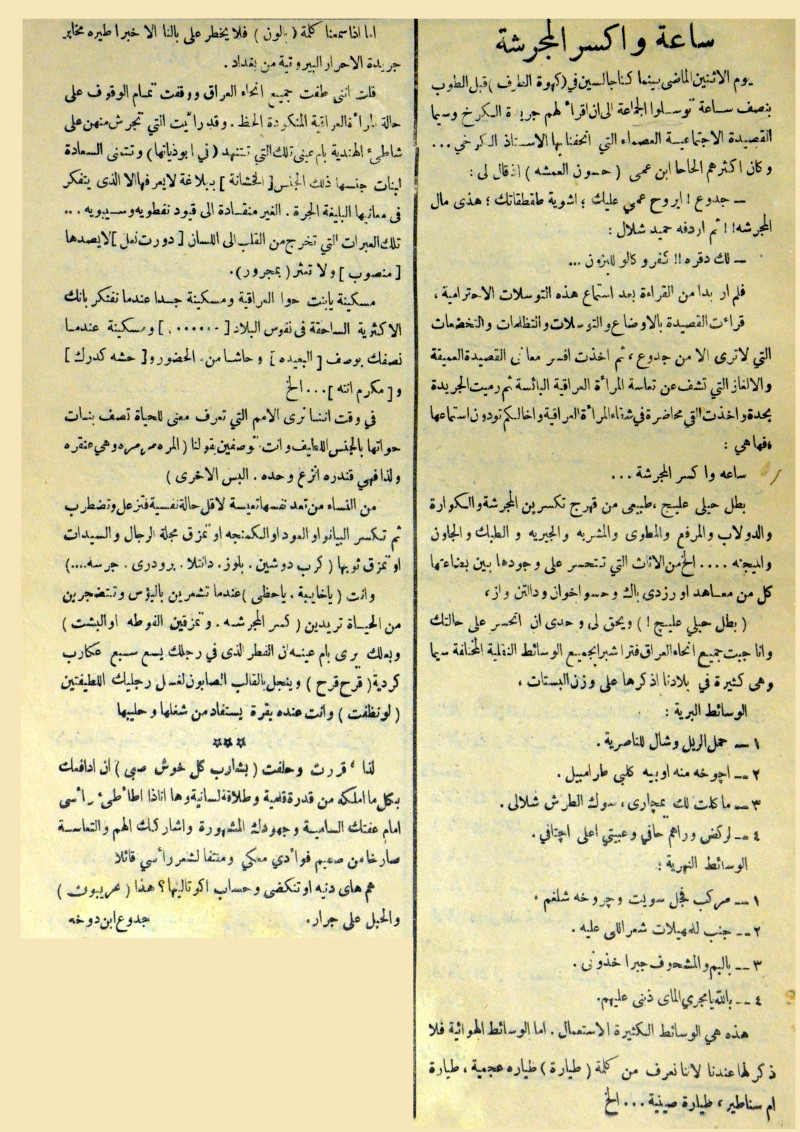 ساعة واكسر المجرشة
يوم الاثنين الماضي بينما كنا جالسين في (كهوة الطرف) قبل الطوب
بنصف ساعة توسلوا الجماعة الى ان اقرأ لهم جريدة الكرخ وسيما
القصيدة الاجتماعية العصماء التي اتحفنا بها الاستاذ الكرخي ...
وكان اكثرهم الحاحا ابن عمى (حسون العمشه) اذ قال لى :
— جدوع ! ابروح عمي عليك ؛ اشوية طقطقاتك ؛ هذى مال
المجرشه !! ثم اردفه حميد شلال :
— لك دقره !! كفرو كالو للبزون ...
فلم ار بدا من القراءة بعد استماع هذه التوسلات الاحترامية ،
قرأت القصيدة بالاوضاع والتوسلات والتظلمات والتخضعات
التي لاترى الا من جدوع ، ثم اخذت افسر معانى القصيدة العميقة
والالغاز التي تشف عن تعاسة المرأة العراقية البائسة ثم رميت الجريدة
بحدة واخذت القي محاضرة في شقاء المرأة العراقية واخالكم تودون استماعها
فها هي :
ساعه واكسر المجرشة ...
بطل حيلي عليج ، طبيعى من قهرج تكسرين المجرشة والكوارة
والدولاب والمرفع والمطوى والمشربه والجبريه و الطبك والجاون
والميجنه .... الخ من الاثاث التي تتحسر على وجودها بين بضاعتها
كل من معاهد اورزدى باك وحسو اخوان ودالتن واز،
(بطل حيلي عليج !) ويحق لى وحدى ان اتحسر على حالتك
وانا جبت جميع انحاء العراق فترا شبرا بجميع الوسائط النقلية المختلفة سيما
وهى كثيرة في بلادنا اذكرها على وزن البستات ،
الوسائط البرية :
١ — حمل الريل وشال للناصرية .
٢ — اچوخه منه اوبيه كلبى طرامبيل .
٣ — ما كلت لك بمچارى ، سوك الطرش شلالى .
٤ — لركض وراهم حافي وعبيتي اعلى اچتافي .
الوسائط النهرية :
١ — مركب فجل سويت وچروخه شلغم ،
٢ — جنب لمهيلات شعر اللى عليه .
٣ — بالبلم والمشحوف جبرا خذونى .
٤ — بالله يامجري الماى ذبنى عليهم.
هذه هي الوسائط الكثيرة الاستعمال . اما الوسائط الهوائية فلا
ذكر لها عندنا لاننا نعرف من كلمة (طيارة) طياره عجمية ، طيارة
ام سناطير ، طيارة صينية ... الخ
اما اذا سمعنا كلمة (بالون) فلا يخطر على بالنا الا خبرا طيره مخابر
جريدة الاحرار البيروتية من بغداد .
قلت اننى طفت جميع انحاء العراق ووقفت تمام الوقوف على
حالة المرأة العراقية المنكودة الحظ . وقد رأيت التي تجرش منهن على
شاطئ الهندية بام عينى تلك التي تتنهد (في ابوذياتها) وتتمنى السعادة
لبنات جنسها ذلك الجنس [الخشانة] ببلاغة لا يعرفها الا الذى يتفكر
في معانيها البليغة الحرة . الغير منقادة الى قيود نفطويه وسيبويه ...
تلك العبرات التي تخرج من القلب الى اللسان [دورت تمل] لا يصدها
[منصوب] ولا تعثر (بمجرور) .
مسكينة يابنت حوا العراقية ومسكينة جدا عندما نفتكر بانك
الاكثرية الساحقة في نفوس البلاد ] ومسكينة عندما
نصفك بوصف [البعيده] وحاشا من الحضور و[حشه كدرك]
و[مكرم انته] ... الخ
في وقت اننا نرى الامم التي تعرف معنى للحياة تصف بنات
حواتها بالجنس اللطيف وانت توصفين بقولنا (المره مره وهي عنقره
ولذا فهي قندره انزع وحده . البس الاخرى)
من النساء من تعد نفسها تعيسة لاقل حالة نفسية فتزعل وتضطرب
ثم تكسر البيانو او العود او الكمنجه او تمزق مجلة الرجال والسيدات
او تمزق ثوبها (كرب دوشين . بلوز . دانتلا . برودرى . جرسه ....)
وانت (ياخايبة . ياحظى) عندما تشعرين بالبؤس وتتضجرين
من الحياة تريدين (كسر المجرشه . وتمزقين الفوطه او البشت)
وبعلك يرى بام عينه ان الفطر الذى في رجلك يسع سبع عكارب
كردية (قرح قرح) ويبخل بالقالب الصابون لغسل رجليك اللطيفتين
(لو نظفت) وانت عنده بقرة يستفاد من شغلها وحليبها
***
لذا قررت وحلفت (بشارب كل خوش صبي) ان ادافعك
بكل ما املكه من قدرة قلمية وطلاقة لسانية وها اناذا اطأطئ رأسى
امام عفتك السامية وجهودك المشهورة واشاركك الهم والتعاسة
صارخا من صميم فؤادي معكي ومنتفا لشعر رأسي قائلا
هم هاى دنيه او تنكضى وحساب اكو تاليها ؟ هذا (عربون)
والحبل على جرار. جدوع ابن دوخه